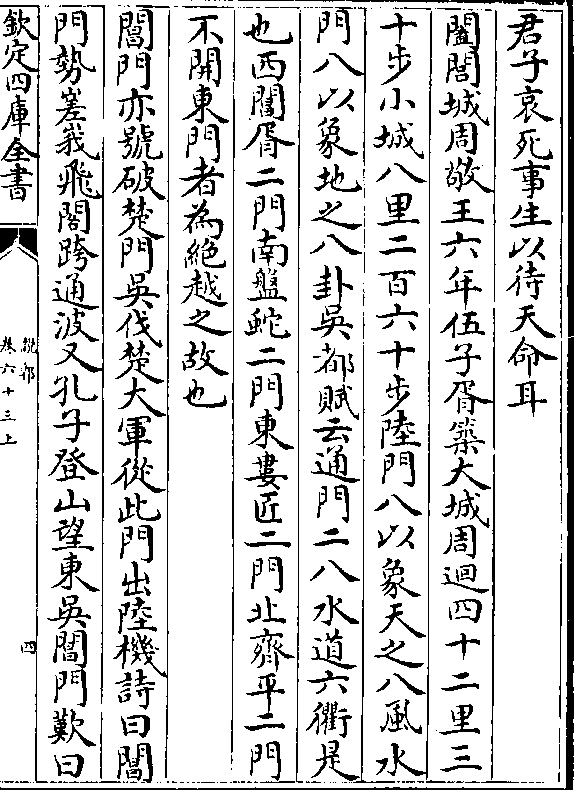 君子哀死事生以待天命耳
闔閭城周敬王六年伍子胥築大城周迴四十二里三
十步小城八里二百六十步陸門八以象天之八風水
門八以象地之八卦吳都賦云通門二八水道六衢是
也西閶胥二門南盤蛇二門東婁匠二門北齊平二門
不開東門者為絶越之故也
閶門亦號破楚門吳伐楚大軍從此門出陸機詩曰閶
門勢嵳峩飛閣跨通波又孔子登山望東吳閶門歎曰
欽定四庫全書
說郛
卷六十三上
四